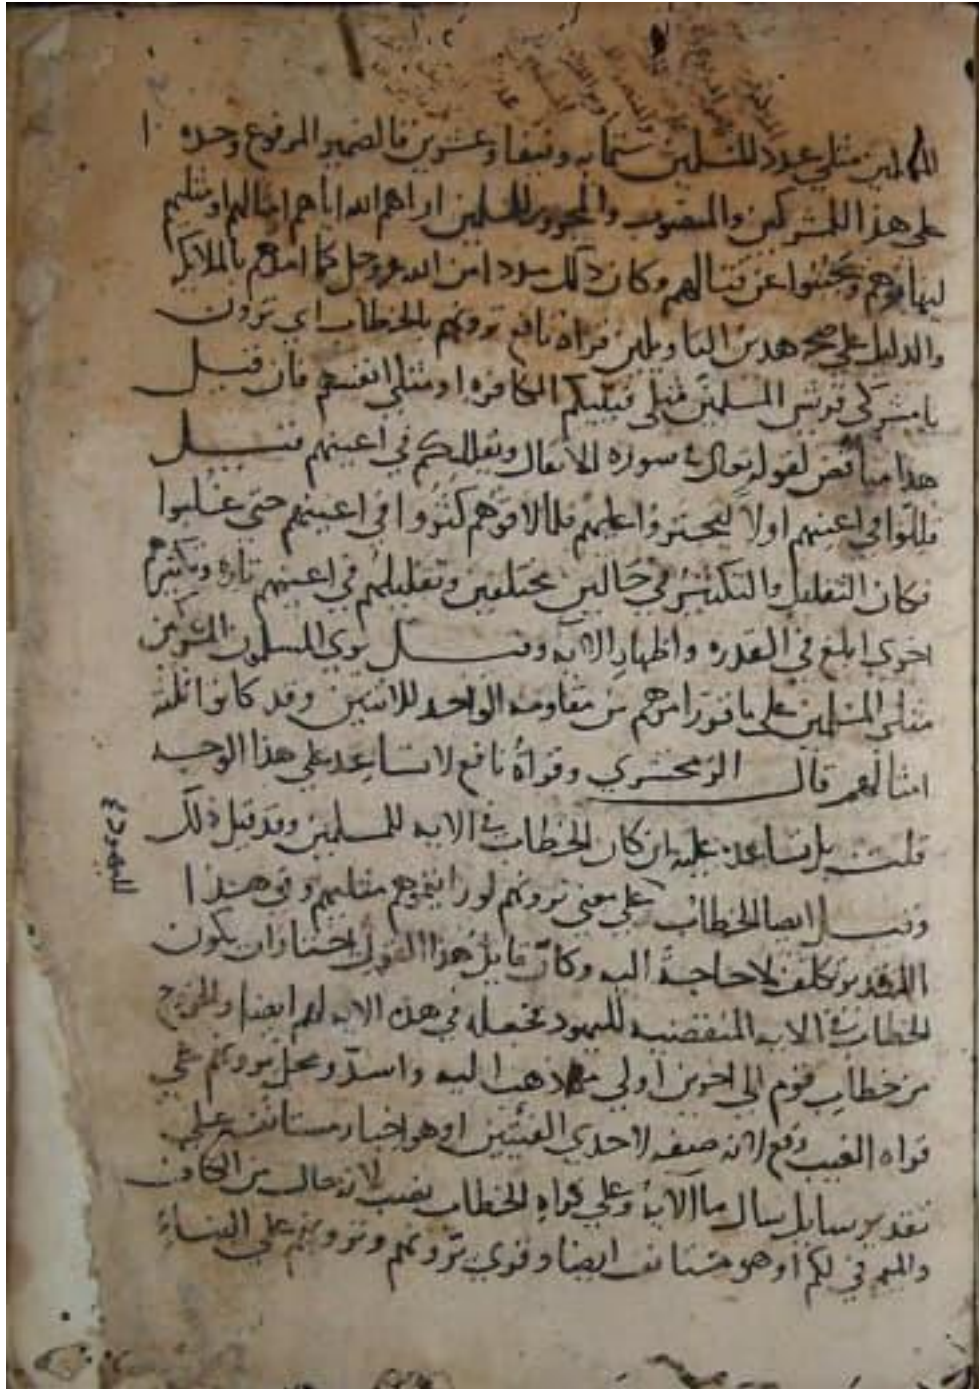 المسلمين مثلي عدد المسلمين ستمايه ونيفا وعشرين فالضمير المرفوع وحده
على هذا للمشركين والمنصوب والمجرور للمسلمين اراهم الله اياهم امثالهم او مثليهم
ليهابوهم ويجبنوا عن قتالهم وكان ذلك مددا من الله عز وجل كما امدهم بالملايكة
والدليل على صحه هذين التاويلين قراة نافع ترونهم بالخطاب اي ترون
يا مشركي قريش المسلمين مثلي فيتكم الكافره او مثلي انفسهم فان قيل
هذا مناقض لقوله تعالى في سوره الانفال ويقللكم في اعينهم قيل
قللوا في اعينهم اولا ليجتروا عليهم فلما لاقوهم كثروا في اعينهم حتى غلبوا
فكان التقليل والتكثير في حالين مختلفين وتقليلهم في اعينهم تارة وتكثيرهم
اخرى ابلغ في القدره واظهار الايه وقيل يرى المسلمون المشركين
مثلي المسلمين على ما قرر امرهم من مقاومه الواحد للاثنين وقد كانوا ثلثه
امثالهم قال الزمخشري وقراة نافع لا تساعد على هذا الوجه
قلت بل تساعد عليه ان كان الخطاب في الايه للمسلمين وقد قيل ذلك
وقيل ايضا الخطاب على معنى ترونهم لو رايتموهم مثليهم وفي هذا
لليهود
التقدير تكلف لا حاجة اليه وكان قايل هذا القول اختار ان يكون
الخطاب في الايه المنقضيه لليهود فجعله في هذه الايه لهم ايضا والخروج
من خطاب قوم الى اخرين اولى مما ذهب اليه واسد ومحل يرونهم على
قراه الغيب رفع لانه صفه لاحدى الفئتين او هو اخبار مستانف على
تقدير سايل سال ما الاية وعلى قراة الخطاب نصب لانه حال من الكاف
والميم في لكم او هو مستانف ايضا وقري ترونهم ويرونهم على البناء